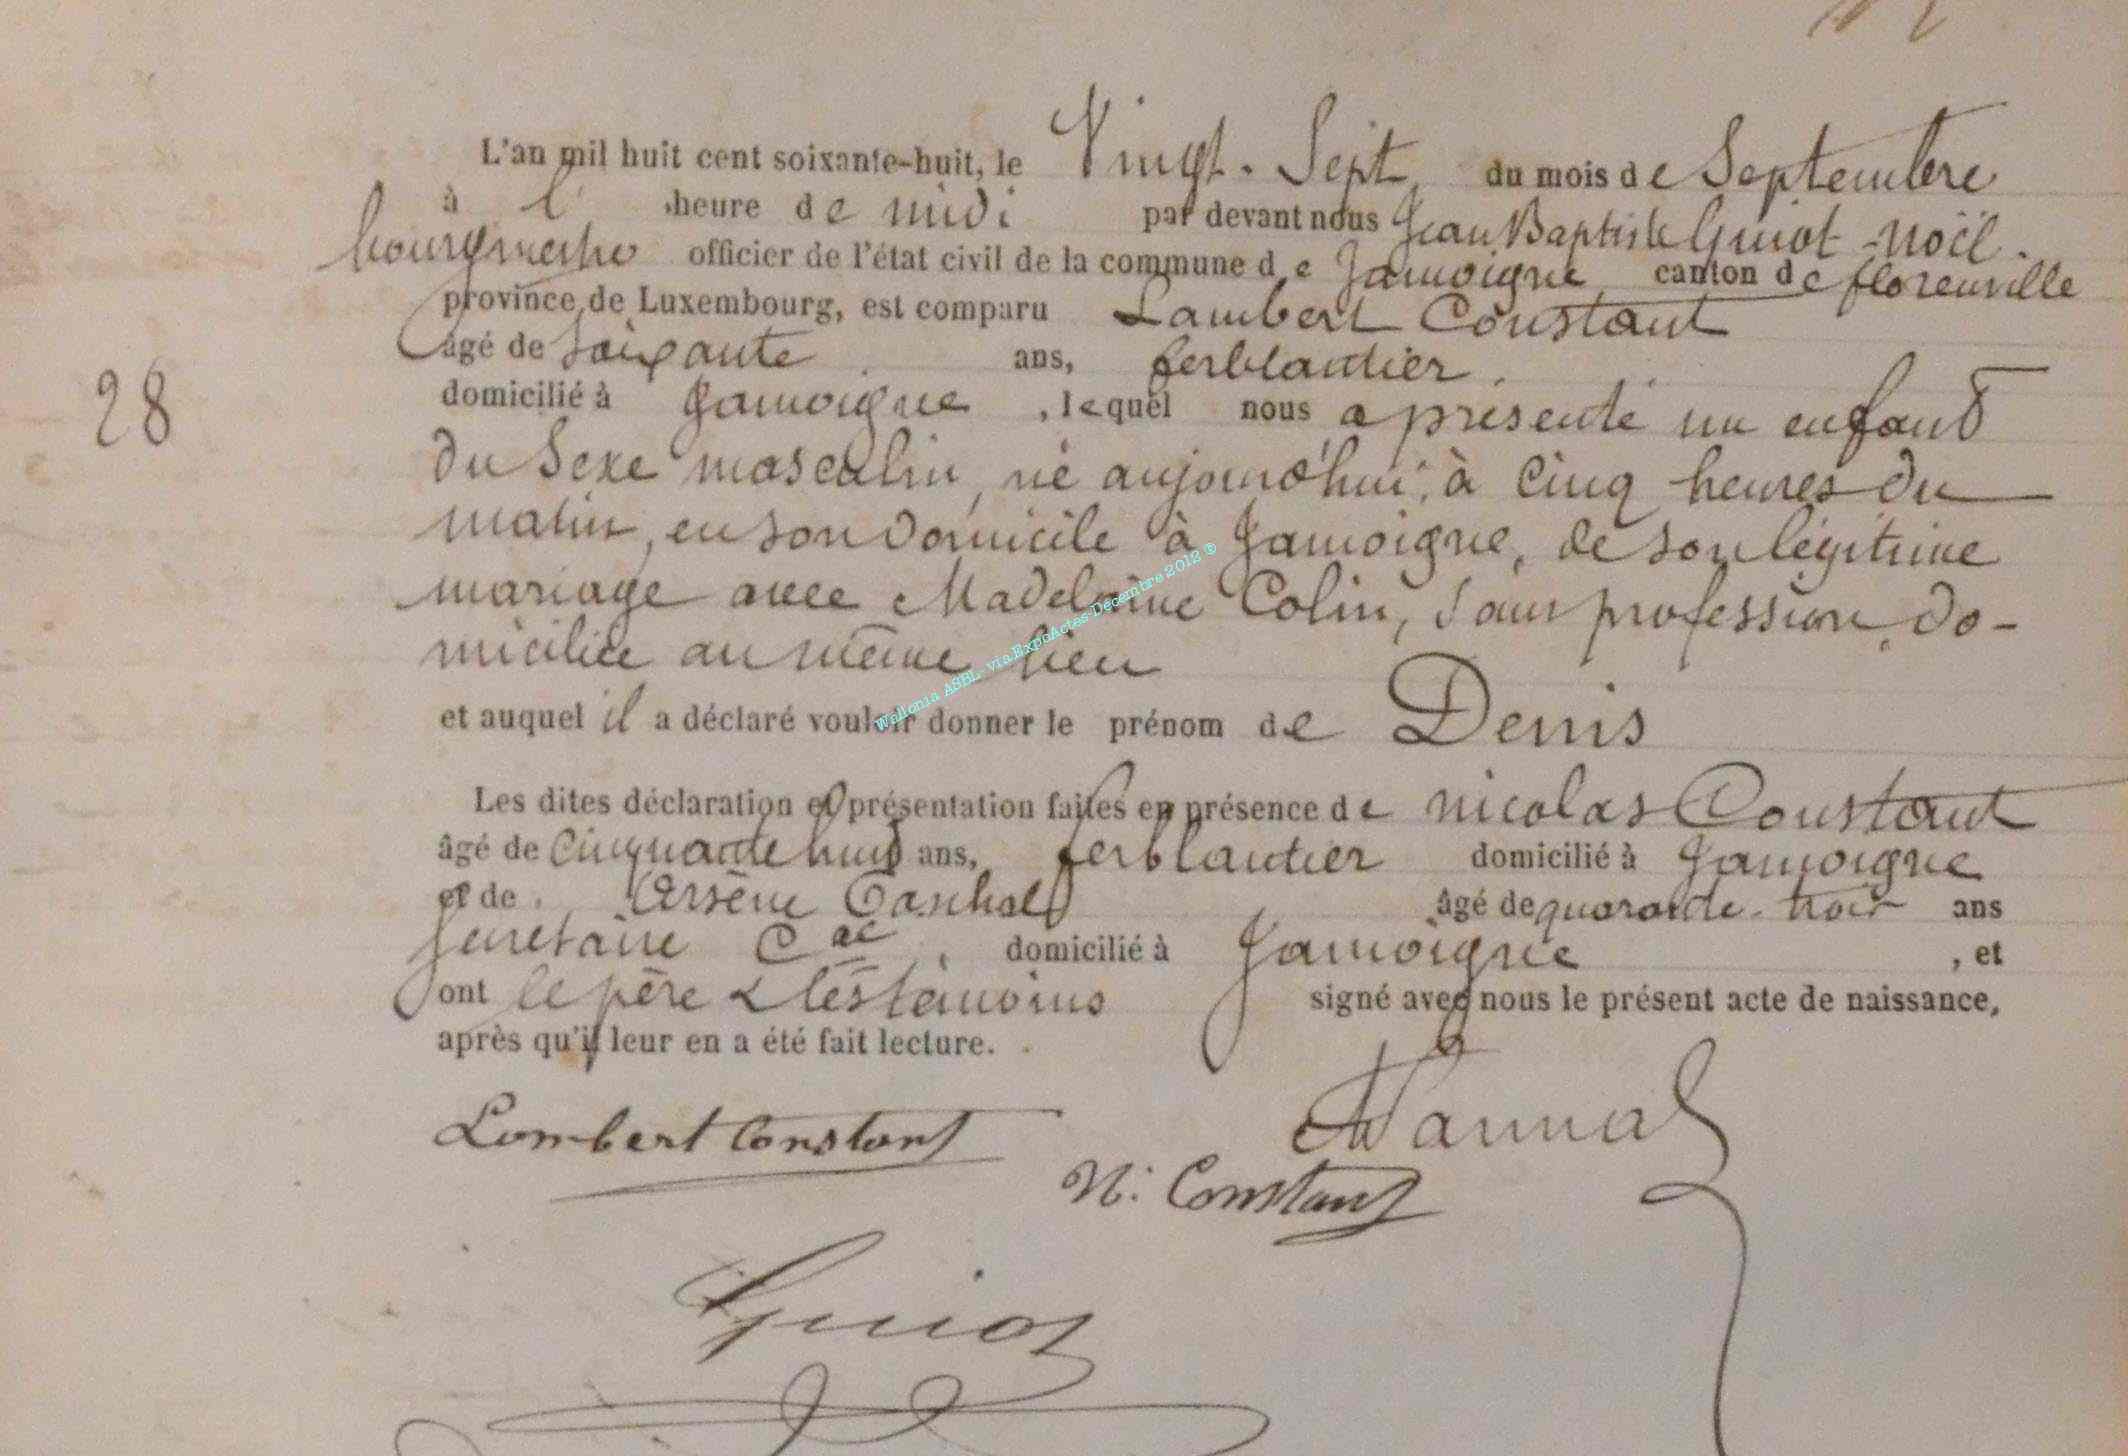 L'an mil huit cent soixante-huit, le Vingt-Sept du mois de Septembre
à l' heure de midi par devant nous Jean Baptiste Guiot-Noël.
bourgmestre officier de l'état civil de la commune de Jamoigne canton de florenville
province de Luxembourg, est comparu Lambert Constant
âgé de soixante ans, ferblantier.
domicilié à Jamoigne, lequel nous a présenté un enfant
28
du sexe masculin, né aujourd'hui, à cinq heures du
matin, en son domicile à Jamoigne, de son légitime
mariage avec Madeleine Colin, sans profession, do-
miciliée au même lieu
et auquel il a déclaré vouloir donner le prénom de Denis
Les dites déclaration et présentation faites en présence de nicolas Constant
âgé de cinquante huit ans, ferblantier domicilié à Jamoigne
et de Arsène âgé de quarante-trois ans
secrétaire Cal, domicilié à Jamoigne, et
ont le père & les témoins signé avec nous le présent acte de naissance,
après qu'il leur en a été fait lecture.
Lambert Constant
N: Constant
Guiot
Wallonia ASBL - via ExpoActes Decembre 2012 ®